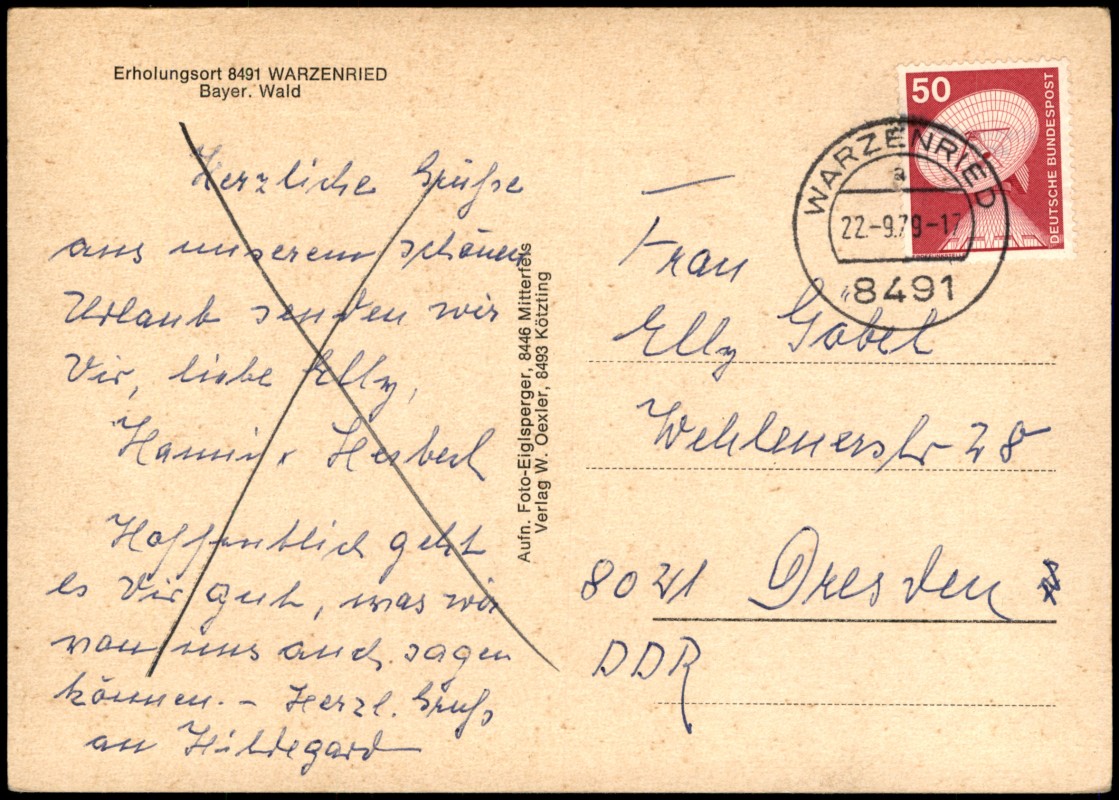 Erholungsort 8491 WARZENRIED
Bayer. Wald
Herzliche Grüße
aus unserem schönen
Urlaub senden wir
Dir, liebe Elly,
Hanni Herbert
Hoffentlich geht
es Dir gut, was wir
von uns auch sagen
können. – Herzl. Gruß
an Hildegard
Aufn. Foto-Eiglsperger, 8446 Mitterfels
Verlag W. Oexler, 8493 Kötzting
50
DEUTSCHE BUNDESPOST
WARZENRIED
a
22.-9.79-17
8491
Frau
Elly Gobel
Wehlenerstr 28
8021 Dresden
DDR